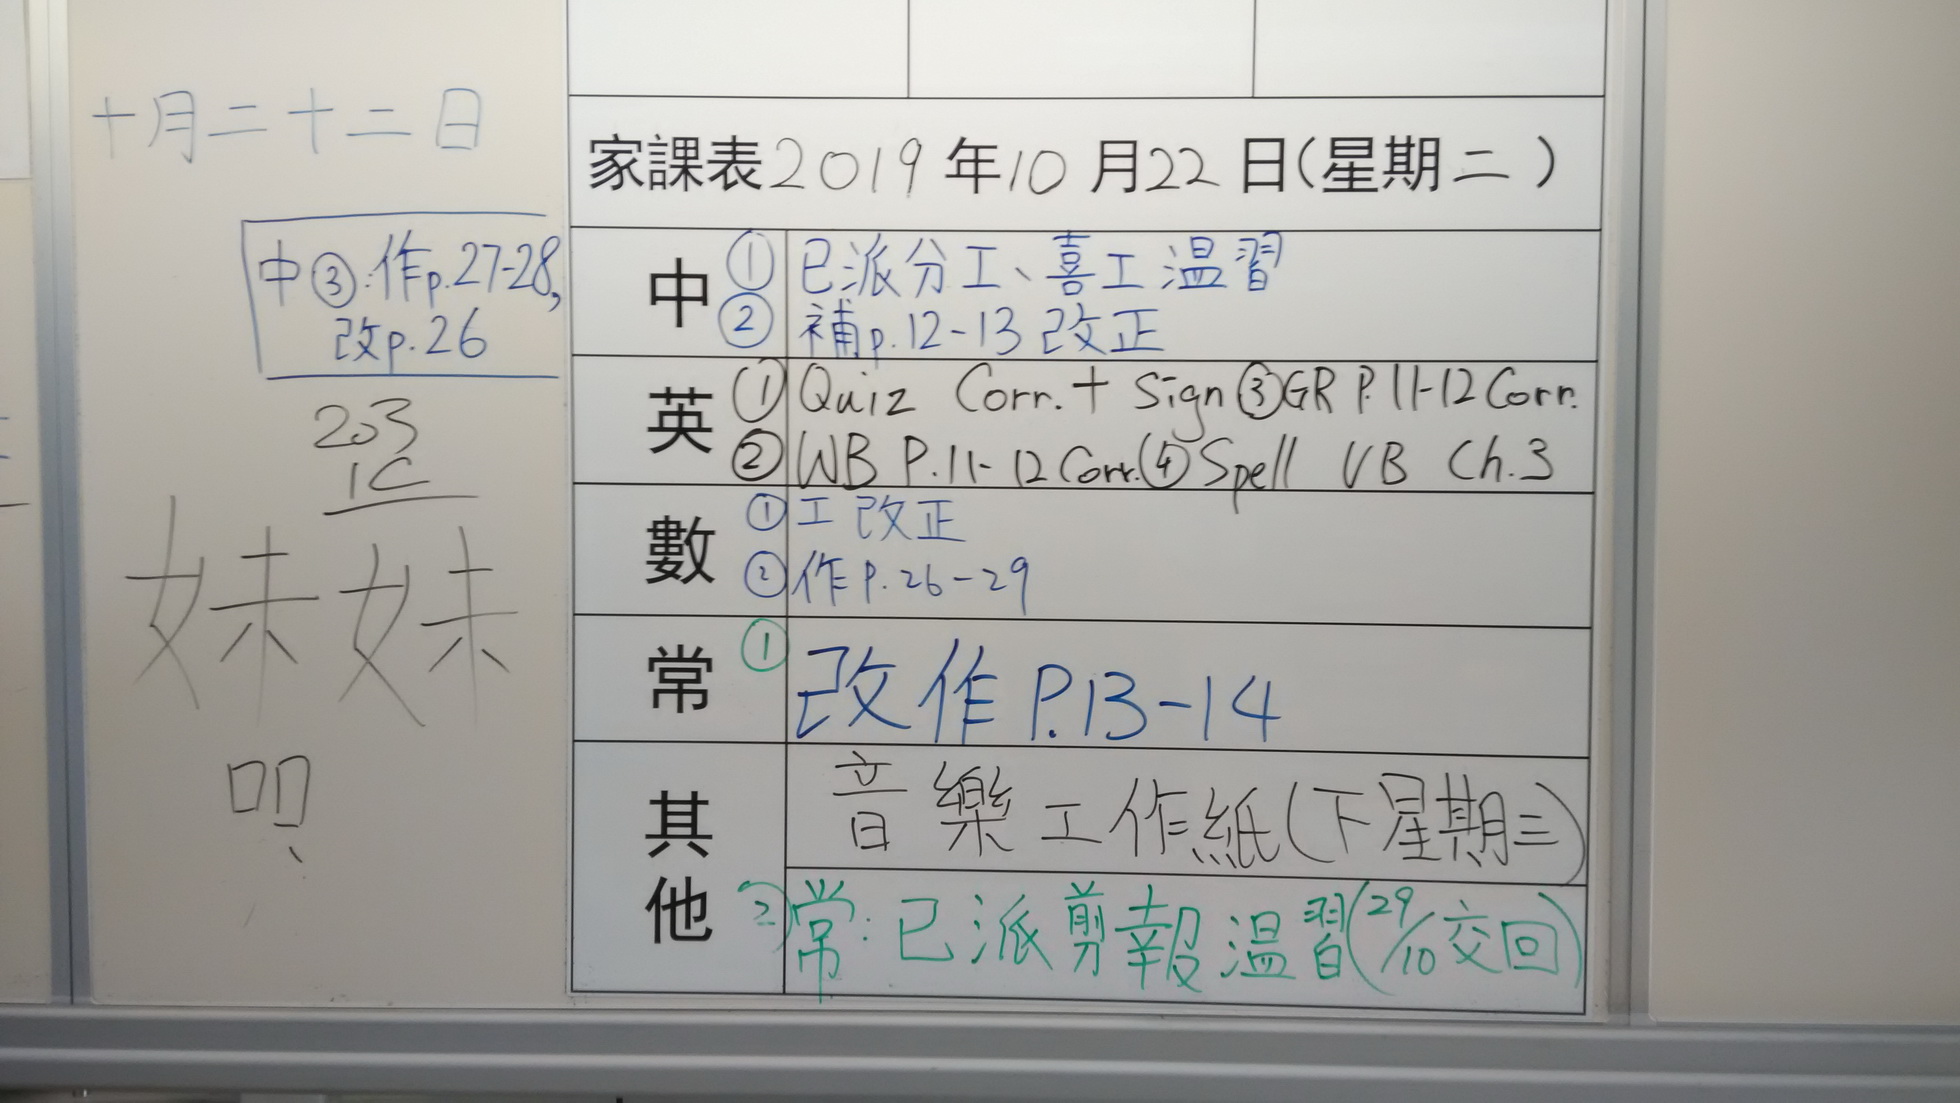 十月二十二日
中③:作p.27-28,
改p.26
203
1C
妹妹
家課表2019年10月22日(星期二)
中 ① 已派分工、喜工溫習
② 補p.12-13改正
英 ① Quiz Corr. + Sign ③ GR P.11-12 Corr.
② WB P.11-12 Corr. ④ Spell VB Ch.3
數 ① 工改正
② 作P.26-29
常 ① 改作P.13-14
其他 音樂工作紙(下星期三)
② 常:已派剪報溫習(29/10交回)